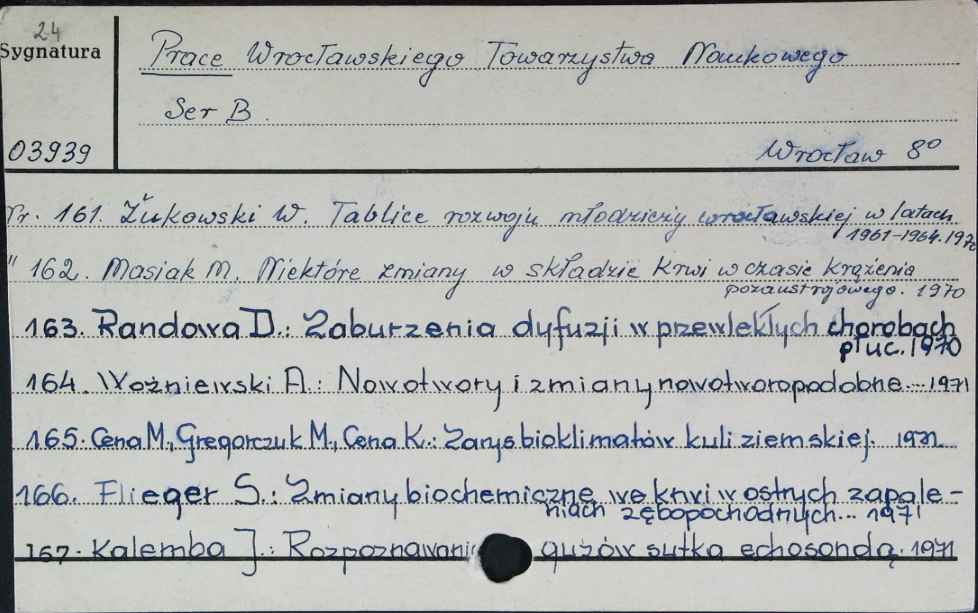 24
Sygnatura
Prace Wrocławskiego Towarzystwa Naukowego
Ser B.
03939
Wrocław 8°
Nr. 161. Żukowski W. Tablice rozwoju młodzieży wrocławskiej w latach
1961-1964. 1970
" 162. Masiak M. Niektóre zmiany w składzie krwi w czasie krążenia
pozaustrojowego. 1970
163. Randowa D.: Zaburzenia dyfuzji w przewlekłych chorobach
płuc. 1970
164. Woźniewski A.: Nowotwory i zmiany nowotworopodobne... 1971
165. Cena M., Gregorczuk M., Cena K.: Zarys bioklimatów kuli ziemskiej. 1971
166. Flieger S.: Zmiany biochemiczne we krwi w ostrych zapale-
niach zębopochodnych... 1971
167. Kalemba J.: Rozpoznawani guzów sutka echosondą. 1971